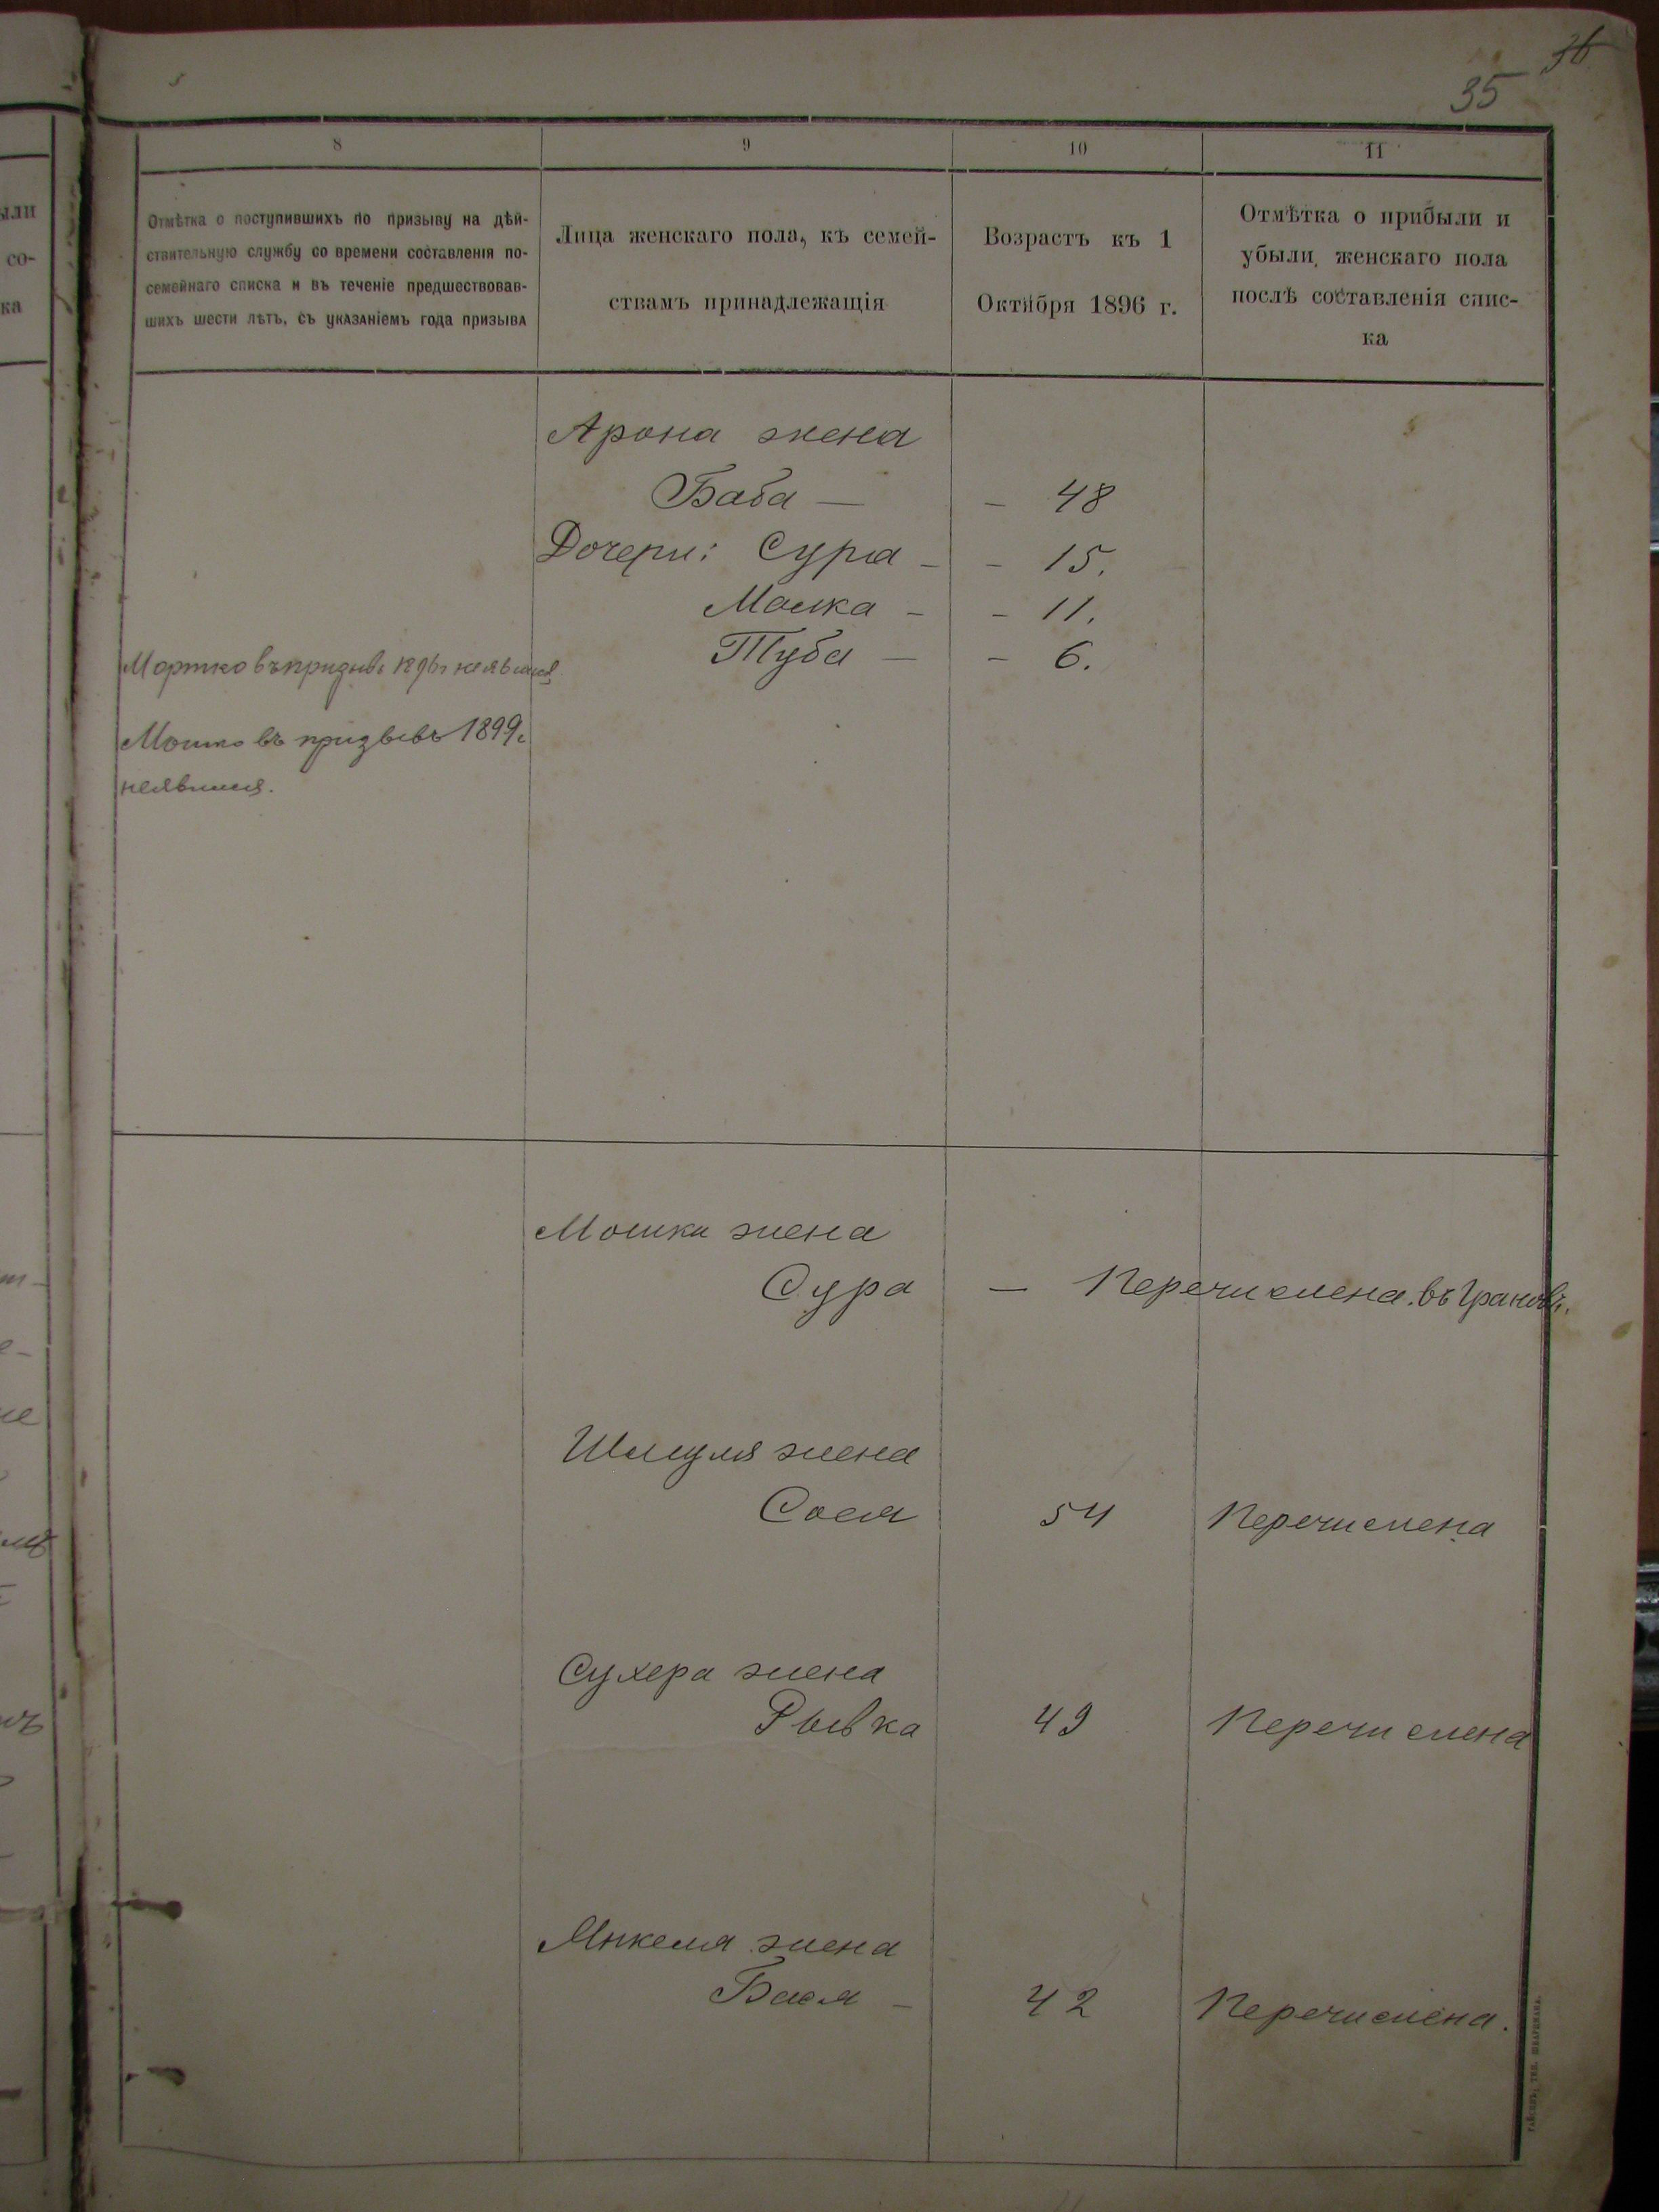 36
35
8
9
10
11
Отмѣтка о поступившихъ по призыву на дѣй-
ствительную службу со времени составленія по-
семейнаго списка и въ теченіе предшествовав-
шихъ шести лѣтъ, съ указаніемъ года призыва
Лица женскаго пола, къ семей-
ствамъ принадлежащія
Возрастъ къ 1
Октября 1896 г.
Отмѣтка о прибыли и
убыли женскаго пола
послѣ составленія спис-
ка
Арона жена
Баба — - 48
Дочери: Сура - - 15.
Малка - - 11.
Туба — - 6.
Мортко въ призывъ неявился
Мошко въ призывъ 1899 г.
неявился.
Мошки жена
Сура — Перечислена въ Грановъ.
Шмуля жена
Сося 54 Перечислена
Сухера жена
Рывка 49 Перечислена
Бася - 42 Перечислена.
ыли
со-
ка